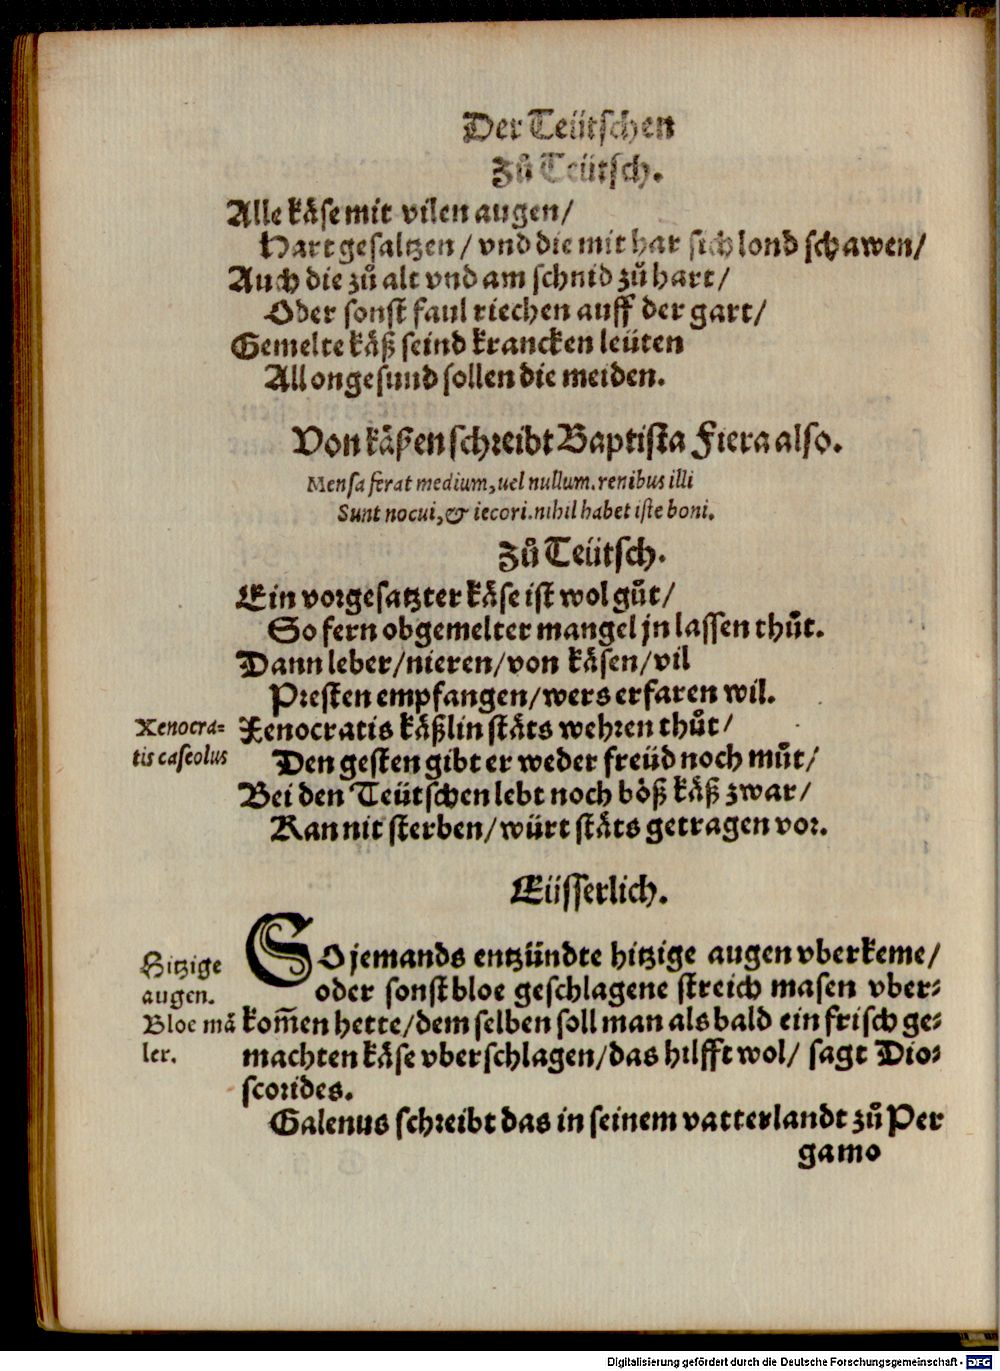 Der Teütschen
Zů Teütsch.
Alle käse mit vilen augen/
Hart gesaltzen / vnd die mit har sich lond schawen/
Auch die zů alt vnd am schnid zů hart/
Oder sonst faul riechen auff der gart/
Gemelte käß seind krancken leüten
All ongesund sollen die meiden.
Von käßen schreibt Baptista Fiera also.
Mensa ferat medium, uel nullum. renibus illi
Sunt nocui, & iecori. nihil habet iste boni.
Zů Teütsch.
Ein vorgesatzter käse ist wol gůt/
So fern obgemelter mangel jn lassen thůt.
Dann leber/nieren/von käsen/vil
Presten empfangen/wers erfaren wil.
Xenocra=
tis caseolus
Xenocratis käßlin stäts wehren thůt/
Den gesten gibt er weder freüd noch můt/
Bei den Teütschen lebt noch böß käß zwar/
Kan nit sterben/würt stäts getragen vor.
Eüsserlich.
Hitzige
augen.
Bloe mä
ler.
SO jemands entzündte hitzige augen vberkeme/
oder sonst bloe geschlagene streich masen vber=
kom̄en hette/dem selben soll man als bald ein frisch ge=
machten käse vberschlagen/das hilfft wol/ sagt Dio=
scorides.
Galenus schreibt das in seinem vatterlandt zů Per
gamo
Digitalisierung gefördert durch die Deutsche Forschungsgemeinschaft - DFG